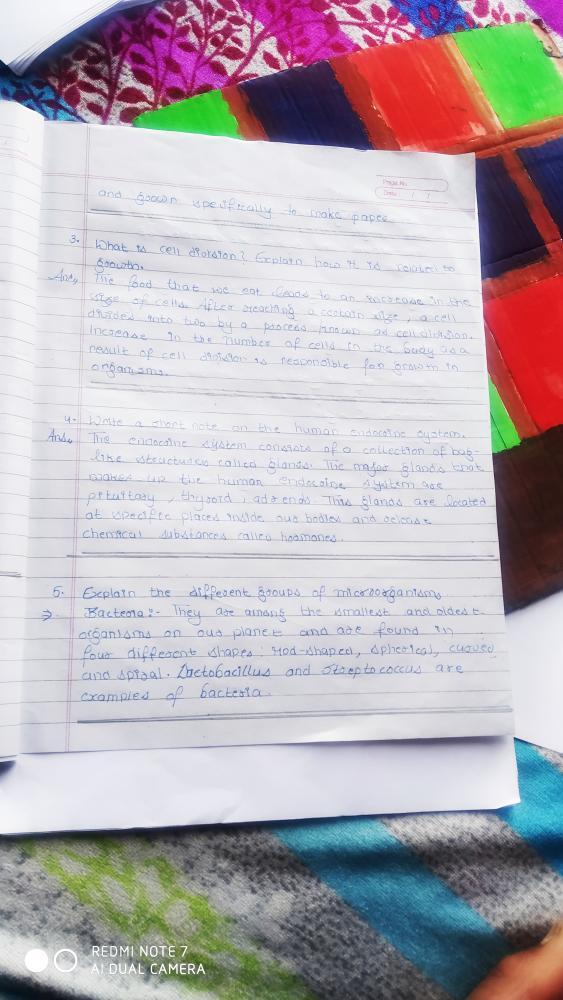 Page No.
Date: / /
and grown specifically to make paper.
3. What is cell division? Explain how it is related to
growth.
Ans, The food that we eat leads to an increase in the
size of cells. After reaching a certain size, a cell
divides into two by a process known as cell division.
Increase in the number of cells in the body as a
result of cell division is responsible for growth in
organisms.
4. Write a short note on the human endocrine system.
Ans, The endocrine system consists of a collection of bag-
like structures called glands. The major glands that
makes up the human endocrine system are
pituitary, thyroid, adrends. This glands are located
at specific places inside our bodies and release
chemical substances called hoomones.
5. Explain the different groups of microorganisms.
⇒ Bacteria:- They are among the smallest and oldest
organisms on our planet and are found in
four different shapes: rod-shaped, spherical, curved
and spiral. Lactobacillus and Streptococcus are
examples of bacteria.
REDMI NOTE 7
AI DUAL CAMERA